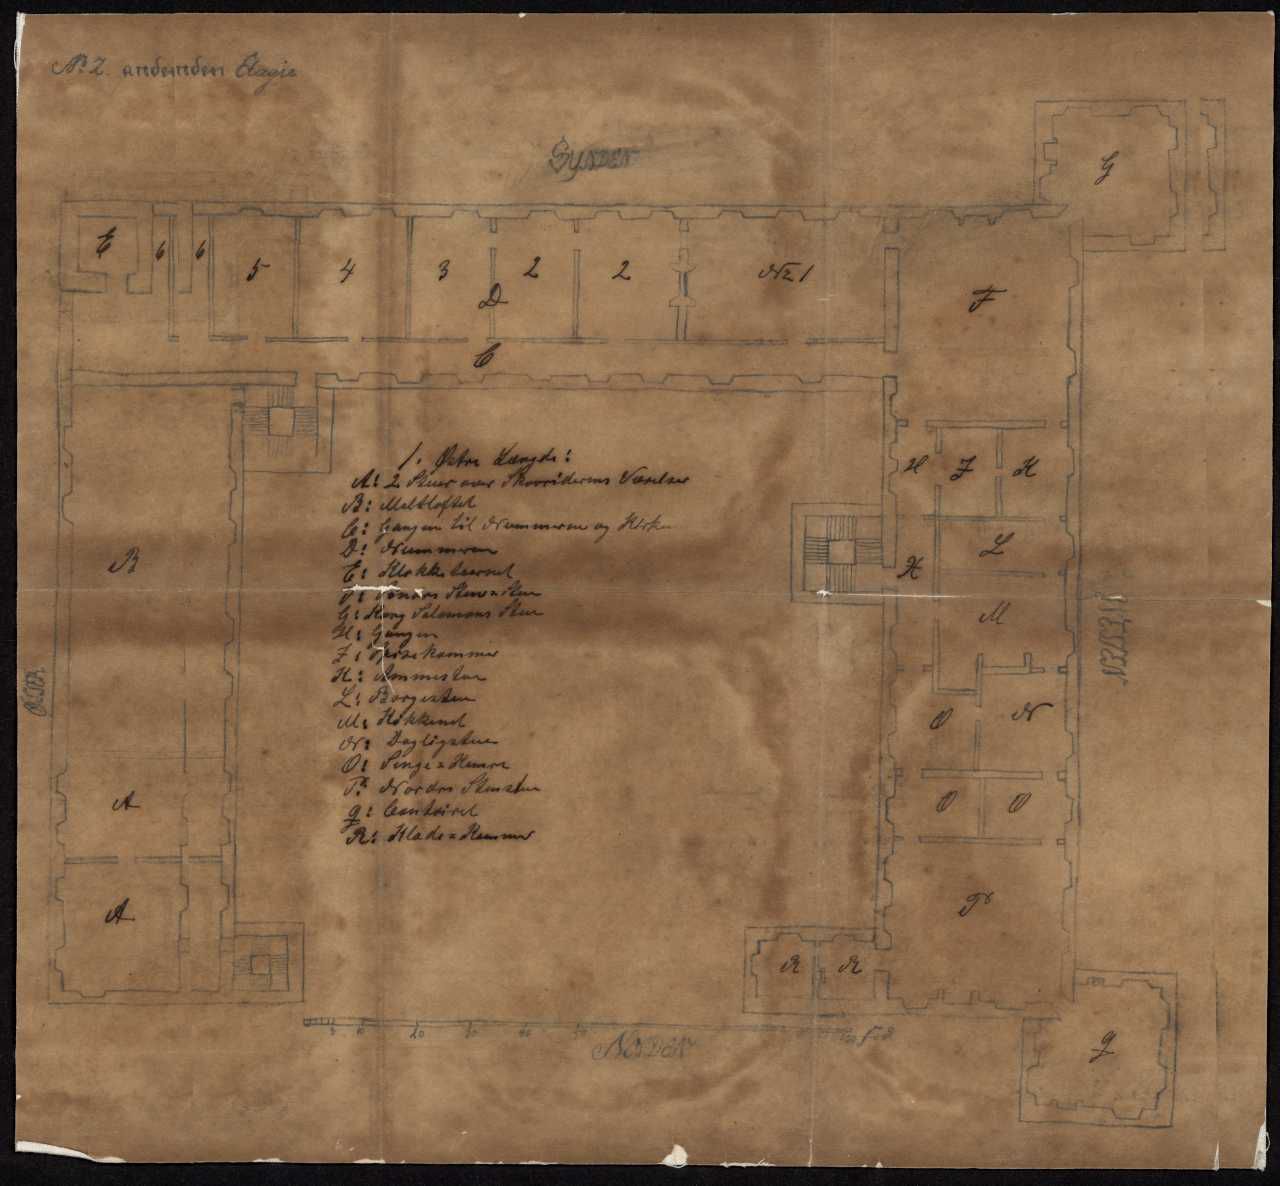 No 2. andenden Etagie
Synden
G
E
6
6
5
4
3
2
2
No 1
D
F
C
1. Østre Længde:
A: 2 Stuer over Skovriderens Værelser
B: Meltloftet
C: Gangen til Nummerne og Kirken
D: Nummerne
E: Klokketaarnet
F: Stue
G: Kong Salomons Stue
H: Gangen
I: kammer
K: Ammestuen
L: Borgestuen
M: Køkkenet
N: Dagligstuen
O: Senge=Kamre
P: Nordre
q: Contoiret
R: Klæde=Kammer
H
I
K
L
H
M
B
Vesten
Østen
O
N
A
O
O
A
P
R
R
q
5
10
20
30
40
50
Fod
Norden